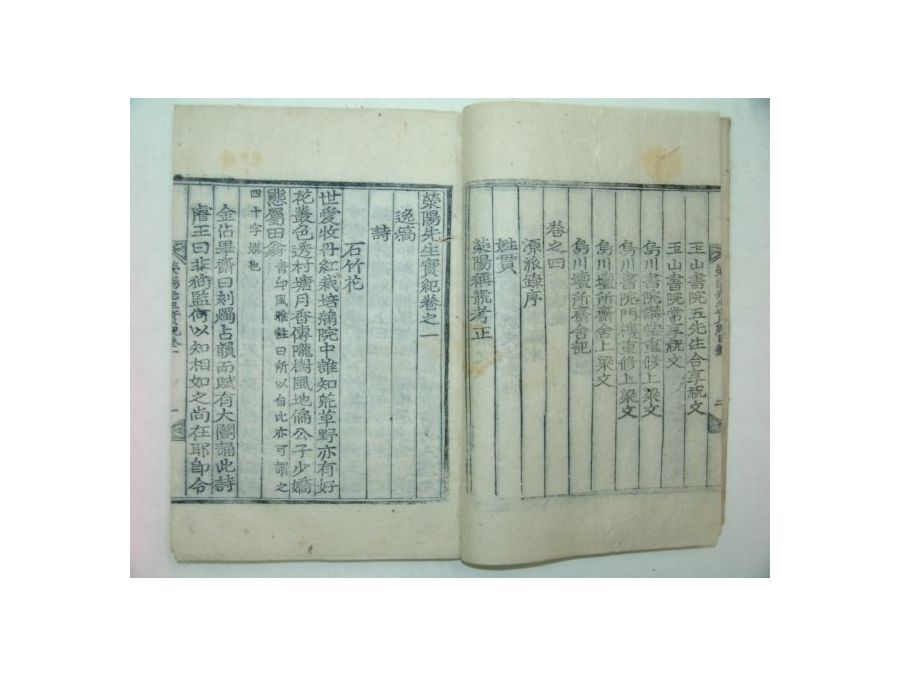 玉山書院五先生合享祝文
玉山書院常享祝文
烏川書院講堂重修上梁文
烏川書院門樓重修上梁文
烏川壇所齋舍上梁文
烏川壇所齋舍記
卷之四
源派錄序
姓貫
滎陽稱號考正
滎陽先生實紀卷之一
逸稿
詩
石竹花
世愛牧丹紅栽培滿院中誰知荒草野亦有好
花叢色透村塘月香傳隴樹風地偏公子少嬌
態屬田翁
四十字媒也
金佔畢齋曰刻燭占韻而賦有大閹誦此詩
睿王曰非狗監何以知相如之尚在耶卽令